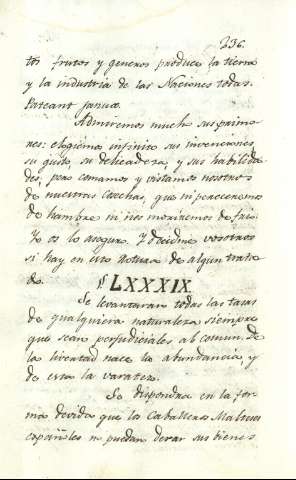 236.
tos frutos y generos produce la tierra
y la industria de las Naciones todas.
Pateant januæ.
Admiremos mucho sus primo
nes: elogiemos infinito sus invenciones
su gusto, su delicadeza, y sus habilida
des, pero comamos y vistamos nosotros
de nuestras Cosechas, que ni pereceremos
de hambre ni nos moriremos de frio.
Yo os lo aseguro. Y decidme vosotros
si hay en esto
de algun trata
do.
§ LXXXIX.
Se levantaran todas las tasas
de qualquiera naturaleza siempre
que sean perjudiciales al comun, de
la libertad nace la abundancia y
de esta la varatez.
Se dispondra en la for
ma devida que los Caballeros Malteses
españoles no puedan dexar sus bienes